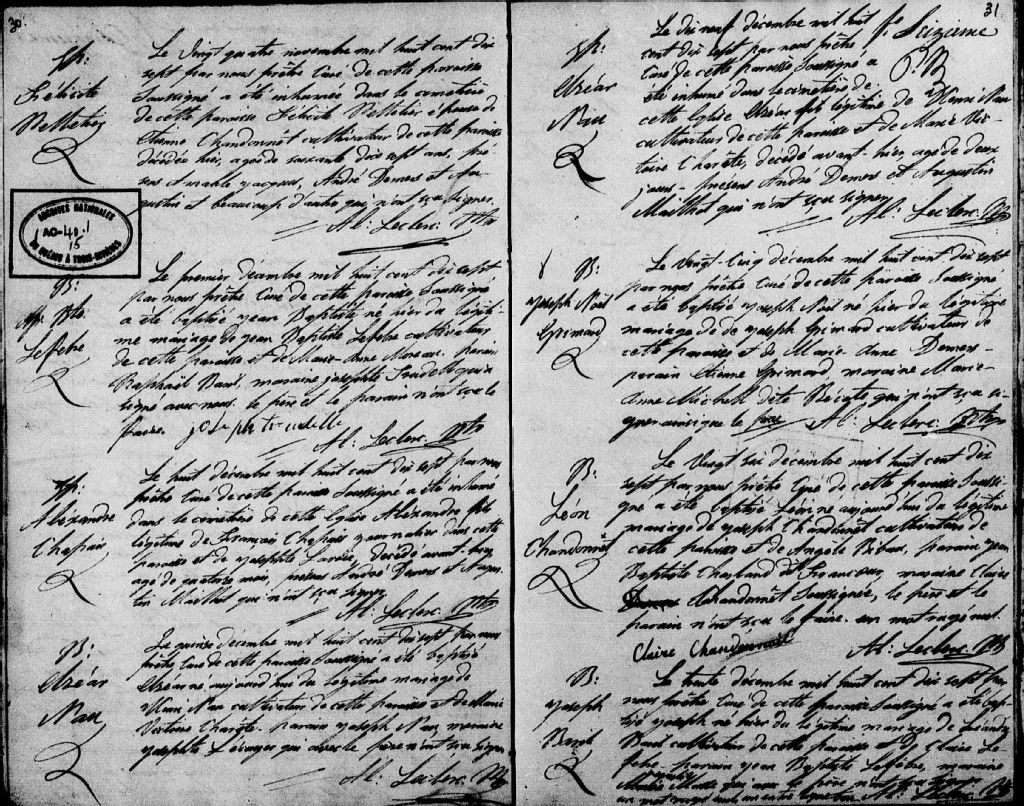 30
Sp:
Félicité
Pelletier
Le Vingt quatre novembre mil huit cent dix
sept par nous prêtre Curé de cette paroisse
Soussigné a été inhumée dans le cimetière
de cette paroisse Félicité Pelletier épouse de
Etienne Chandonnêt cultivateur de cette paroisse
décédée hier, agée de soixante dix sept ans, pré-
sens Amable André Demers et Au-
gustin et beaucoup d'autres qui n'ont sçu signer
Al: Leclerc. Ptre
ARCHIVES NATIONALES
AC-40.1
15
DU QUÉBEC À TROIS-RIVIÈRES
B:
Bte
Lefebre
Le premier décembre mil huit cent dix sept
par nous prêtre Curé de cette paroisse Soussigné
a été baptisé Jean Baptiste né hier du légiti-
me mariage de Jean Baptiste Lefebre cultivateur
de cette paroisse et de Marie Anne Moreau. parain
Raphaël Baril, maraine Josephte Trudelle qui a
signé avec nous. le père et le parain n'ont sçu le
faire. joseph trudelle
Al: Leclerc. Ptre
Sp:
Aléxandre
Chapais
Le huit décembre mil huit cent dix sept par nous
prêtre Curé de cette paroisse Soussigné a été inhumé
dans le cimetière de cette Eglise Aléxandre fils
légitime de François Chapais journalier dans cette
paroisse et de Josephte décédé avant-hier
agé de quatorze mois, présens André Demers et Augus-
tin Mailhot qui n'ont sçu signer
Al: Leclerc Ptre
B:
Elzéar
Nau
Le quinze décembre mil huit cent dix sept par nous
prêtre Curé de cette paroisse Soussigné a été baptisé
Elzéar né aujourd'hui du légitime mariage de
Nau cultivateur de cette paroisse et de Marie
Victoire Charêt. parain Joseph Nau, maraine
Josephte qui avec le père n'ont sçu signer
Al: Leclerc. Ptre
31
Seizieme
P.B
Sp:
Elzéar
Nau
Le dix neuf décembre mil huit
cent dix sept par nous prêtre
Curé de cette paroisse Soussigné a
été inhumé dans le cimetière de
cette Eglise Elzéar fils légitime de Nau
cultivateur de cette paroisse et de Marie Vic-
toire Charêt, décédé avant-hier, agé de deux
jours - présens André Demers et Augustin
Mailhot qui n'ont sçu signer
Al: Leclerc. Ptre
B:
Joseph Noël
Grimard
Le Vingt-Cinq décembre mil huit cent dix sept
par nous prêtre Curé de cette paroisse Soussigné
a été baptisé Joseph Noël né hier du légitime
mariage de de Joseph Grimard cultivateur de
cette paroisse et de Marie-Anne-Demers-
parain Etienne Grimard maraine Marie-
Anne Michel dite qui n'ont sçu si-
gner ainsi que le père
Al: Leclerc Ptre
B:
Léon
Chandonnêt
Le Vingt six décembre mil huit cent dix
sept par nous prêtre Curé de cette paroisse Soussi-
gné a été baptisé Léon né aujourd'hui du légitime
mariage de Joseph Chandonnêt cultivateur de
cette paroisse et de Angele parain Jean
Baptiste Charland dit Francoeur, maraine Claire
Chandonnêt Soussignée, le père et le
parain n'ont sçu le faire. un mot rayé nul.
Claire Chandonnêt
Al: Leclerc Ptre
B:
Joseph
Baril
Le trente décembre mil huit cent dix sept par
nous prêtre Curé de cette paroisse Soussigné a été bap-
tisé Joseph né hier du légitime mariage de
Baril cultivateur de cette paroisse et de Claire Le-
febre - parain Jean Baptiste Lefebre, maraine